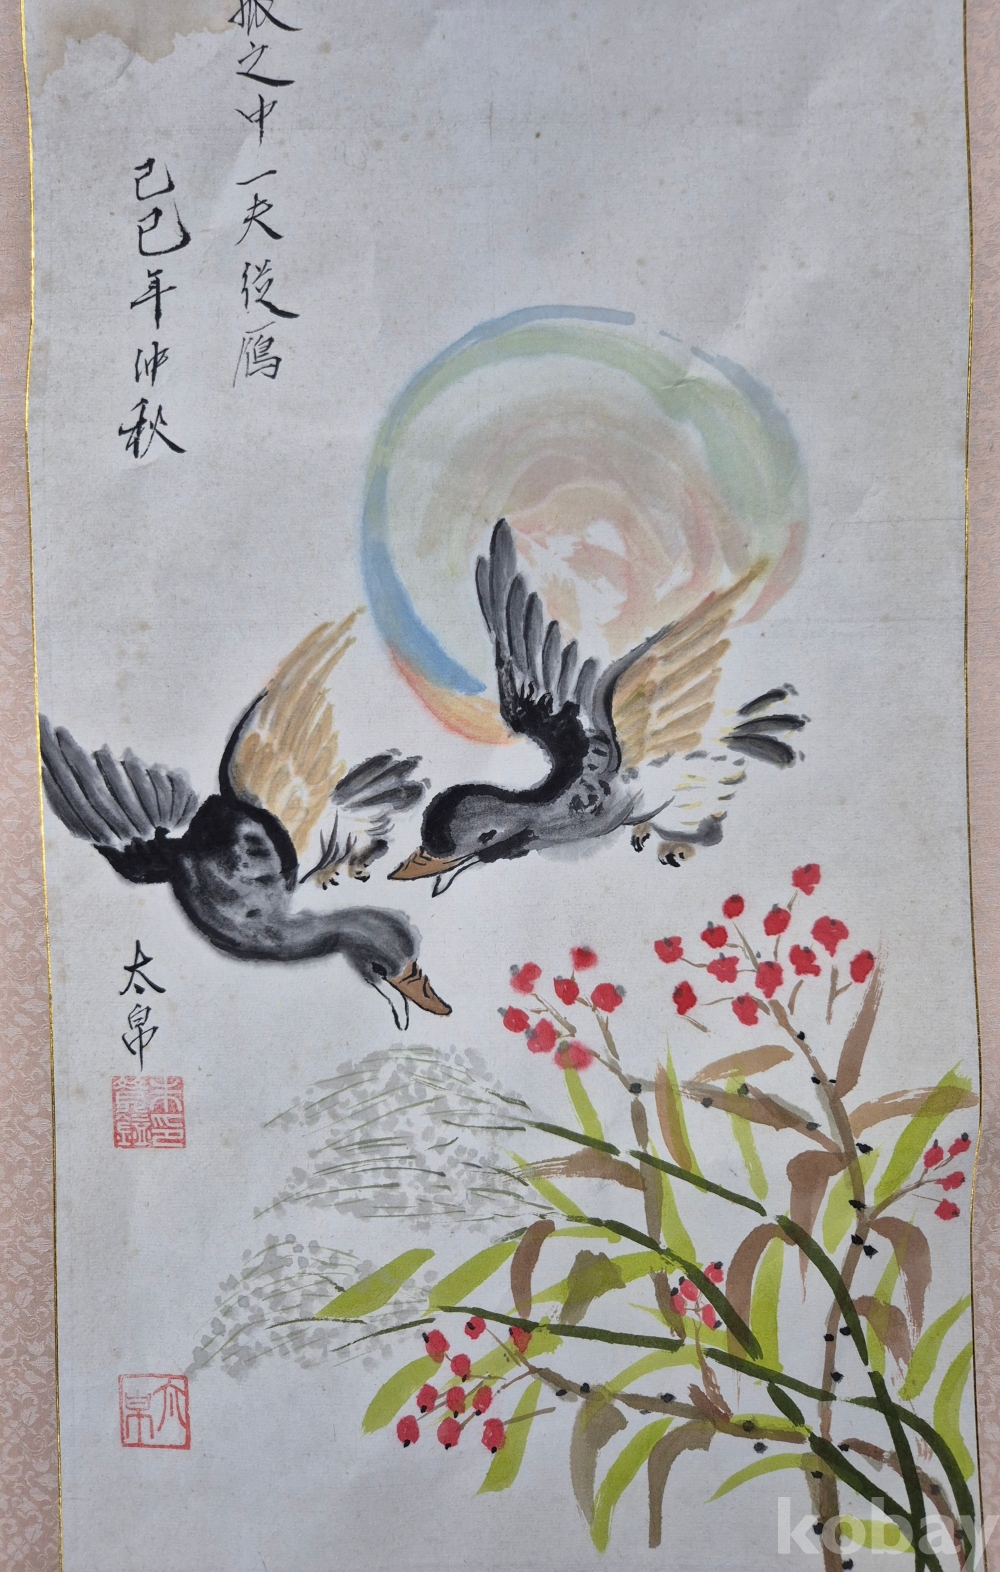 振之中一夫從鴈
己巳年仲秋
太帛
kobay